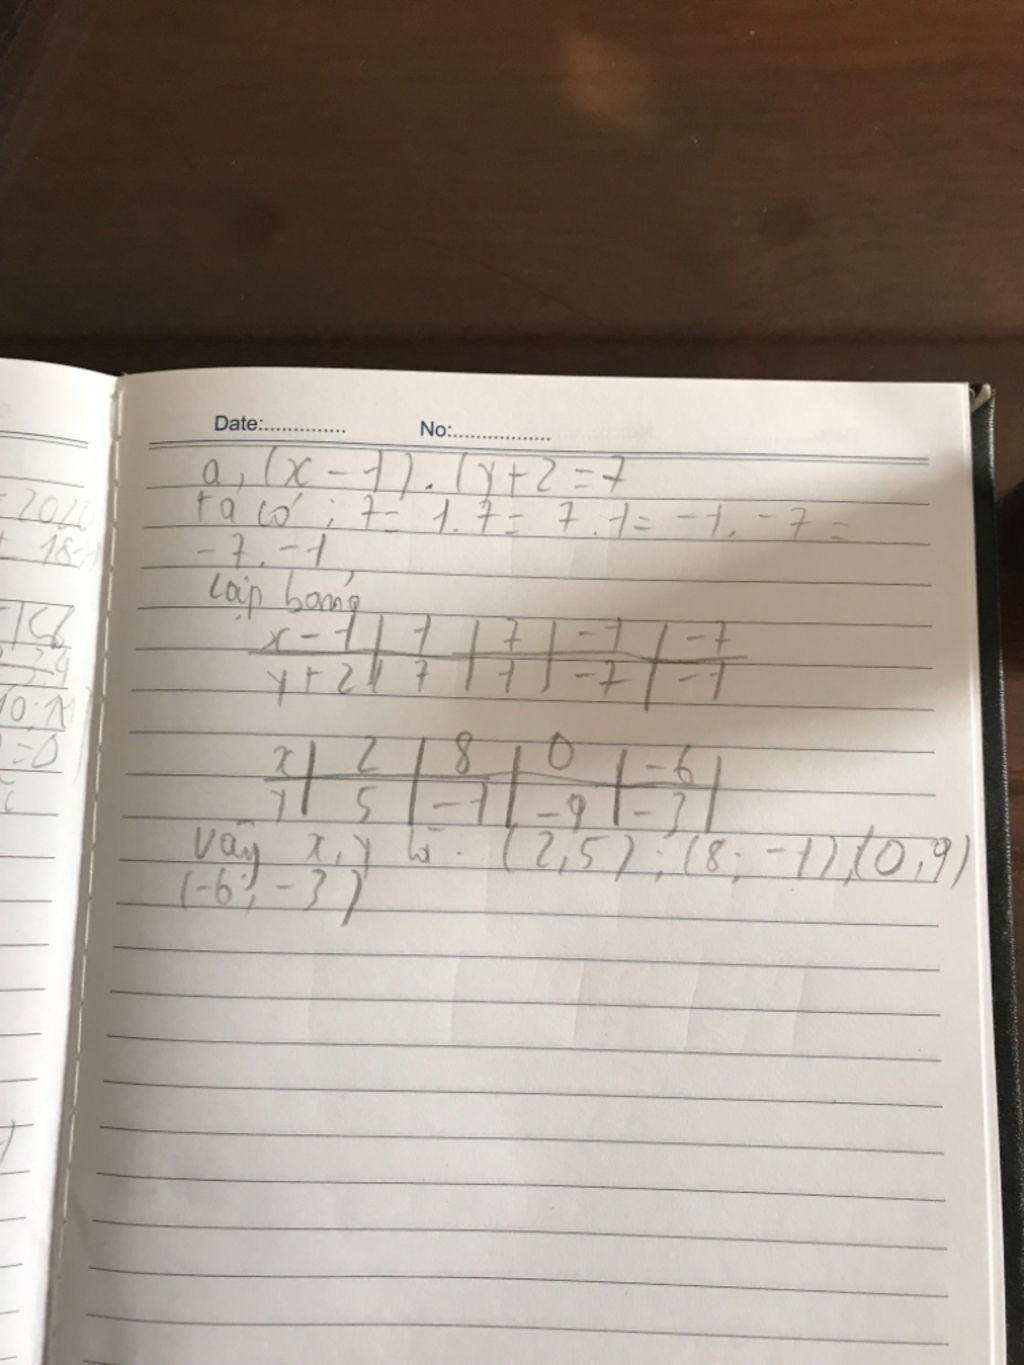 Date:.............. No:.................
a, (x - 1). (y+2 = 7
ta có ; 7 = 1.7 = 7.1 = -1. -7 =
-7. -1
Lập bảng
x - 1 | 1 | 7 | -1 | -7
y + 2 | 7 | 1 | -7 | -1
x | 2 | 8 | 0 | -6 |
y | 5 | -1 | -9 | -3 |
Vậy x, y là : (2,5) ; (8; -1), (0,9)
(-6; -3)